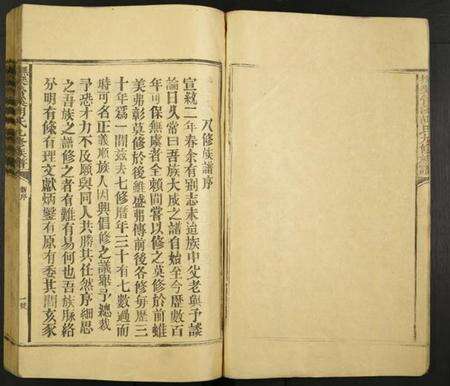 八修族譜序
宣統二年春余有別志未逭族中父老與予談
論日久常曰吾族大成之譜自始至今歷數百
年可保無虞者全賴間嘗以修之莫修於前雖
美弗彰莫修於後雖盛弗傳前後各修每歷三
十年爲一間茲去七修曆年三十有七數過而
時可名正義順族人因興倡修之議舉予總裁
予恐才力不及願與同人共勝其任然序細思
之吾族之譜修之者有難有易何也吾族脉絡
分明有條有理文獻炳鑿有原有委其間亥豕